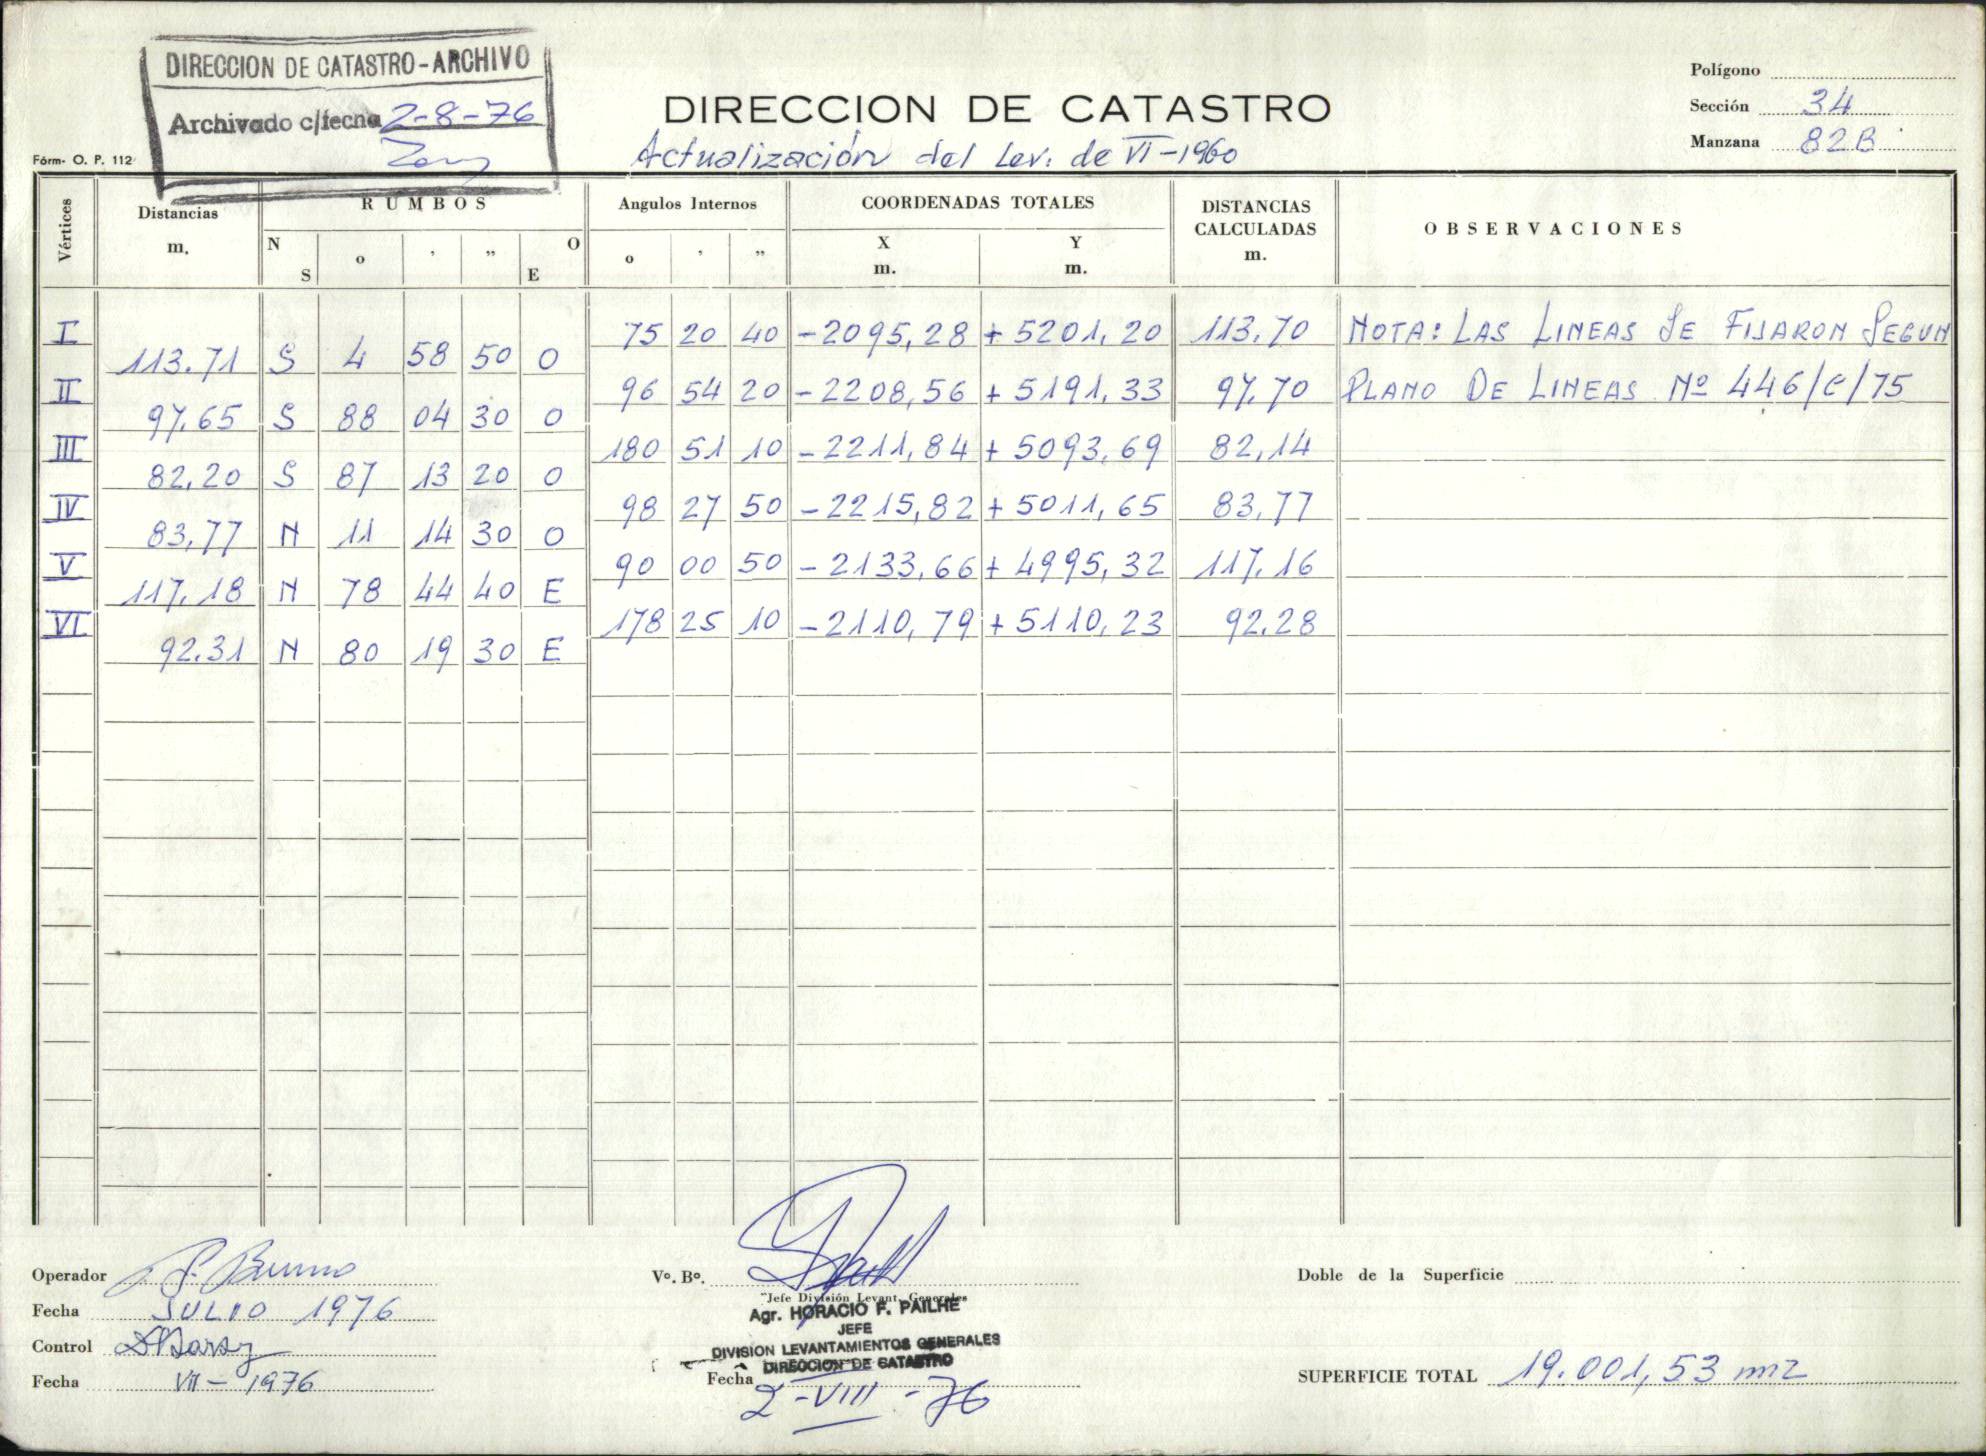 DIRECCION DE CATASTRO-ARCHIVO
Archivado c/fecha 2-8-76
Fórm. O. P. 112
DIRECCION DE CATASTRO
Actualización del Lev. de VI-1960
Polígono
Sección 34
Manzana 82B
Vértices
Distancias m.
RUMBOS
N S o ' " O E
Angulos Internos
o ' "
COORDENADAS TOTALES
X m. Y m.
DISTANCIAS CALCULADAS m.
OBSERVACIONES
I 75 20 40 -2095,28 +5201,20 113,70 NOTA: LAS LINEAS SE FIJARON SEGUN
113.71 S 4 58 50 O
II 96 54 20 -2208,56 +5191,33 97,70 PLANO DE LINEAS Nº 446/C/75
97,65 S 88 04 30 O
III 180 51 10 -2211,84 +5093,69 82,14
82,20 S 87 13 20 O
IV 98 27 50 -2215,82 +5011,65 83,77
83,77 N 11 14 30 O
V 90 00 50 -2133,66 +4995,32 117,16
117,18 N 78 44 40 E
VI 178 25 10 -2110,79 +5110,23 92.28
92.31 N 80 19 30 E
Operador
Fecha JULIO 1976
Control
Fecha VII-1976
Vº. Bº.
"Jefe División Levant. Generales
Agr. HORACIO F. PAILHE
JEFE
DIVISION LEVANTAMIENTOS GENERALES
DIRECCION DE CATASTRO
Fecha
2-VIII-76
Doble de la Superficie
SUPERFICIE TOTAL 19.001,53 m2